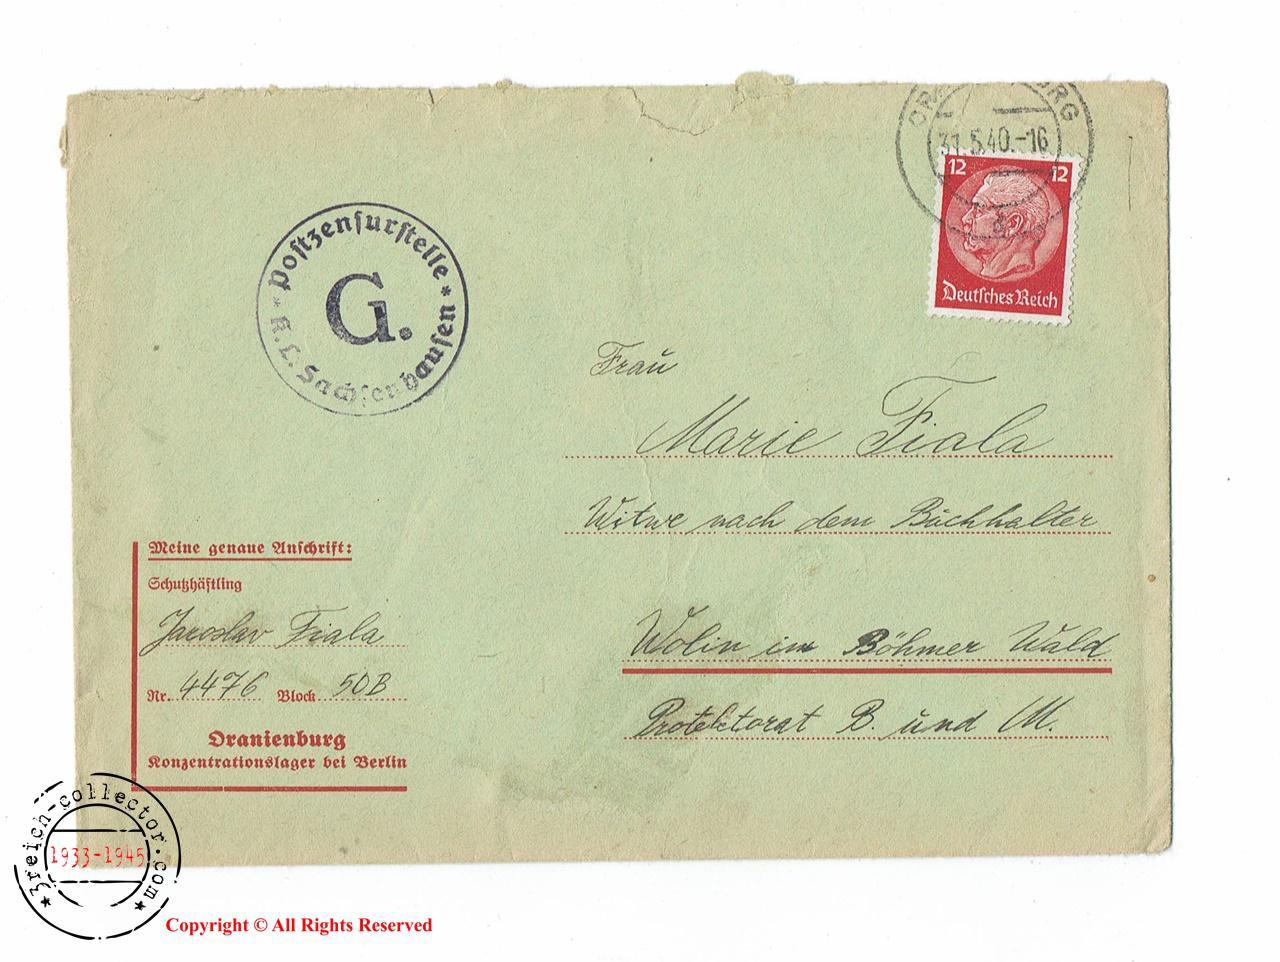 Postzensurstelle
G.
K.L. Sachsenhausen
31.5.40.-16
12 12
Deutsches Reich
Frau
Marie Fiala
Witwe nach dem Buchhalter
Wolin im Böhmer Wald
Protektorat B. und M.
Meine genaue Anschrift:
Schutzhäftling
Jaroslav Fiala
Nr. 4476 Block 50B
Oranienburg
Konzentrationslager bei Berlin
3reich-collector.com
1933-1945
Copyright © All Rights Reserved